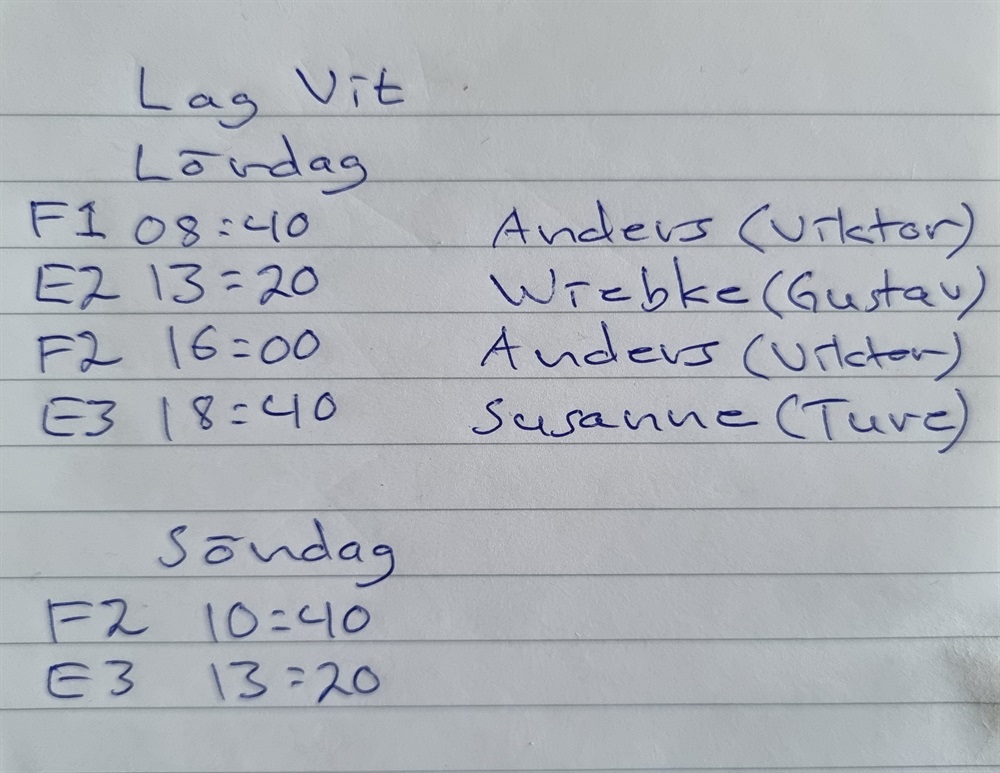 Lag Vit
Lördag
F1 08:40 Anders (Viktor)
E2 13:20 Wiebke (Gustav)
F2 16:00 Anders (Viktor)
E3 18:40 Susanne (Ture)
Söndag
F2 10:40
E3 13:20